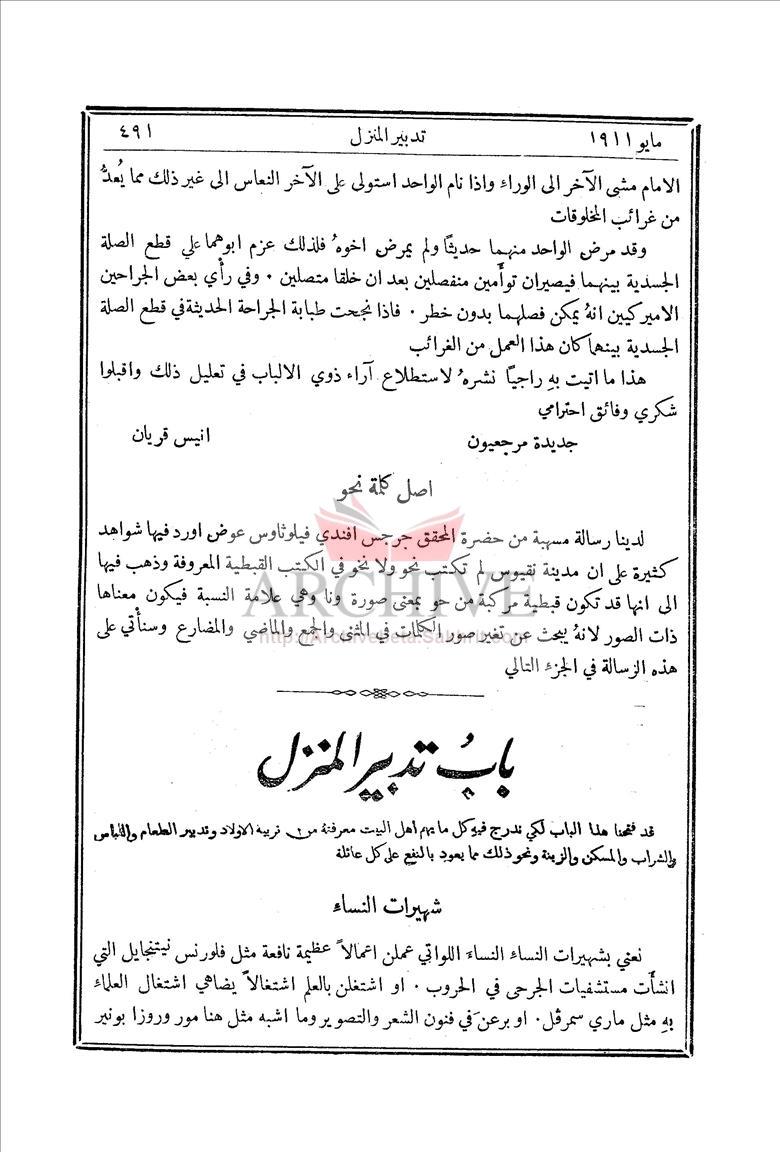 مايو ١٩١١ تدبير المنزل ٤٩١
الامام مشى الآخر الى الوراء واذا نام الواحد استولى على الآخر النعاس الى غير ذلك مما يُعدُّ
من غرائب المخلوقات
وقد مرض الواحد منهما حديثاً ولم يمرض اخوهُ فلذلك عزم ابوهما على قطع الصلة
الجسدية بينهما فيصيران توأَمين منفصلين بعد ان خلقا متصلين ٠ وفي رأْي بعض الجراحين
الاميركيين انهُ يمكن فصلهما بدون خطر ٠ فاذا نجحت طبابة الجراحة الحديثة في قطع الصلة
الجسدية بينهما كان هذا العمل من الغرائب
هذا ما اتيت بهِ راجياً نشرهُ لاستطلاع آراء ذوي الالباب في تعليل ذلك واقبلوا
شكري وفائق احترامي
جديدة مرجعيون انيس قربان
اصل كلمة نحو
لدينا رسالة مسهبة من حضرة المحقق جرجس افندي فيلوثاوس عوض اورد فيها شواهد
كثيرة على ان مدينة نقيوس لم تكتب نحو ولا نخو في الكتب القبطية المعروفة وذهب فيها
الى انها قد تكون قبطية مركبة من حو بمعنى صورة ونا وهي علامة النسبة فيكون معناها
ذات الصور لانهُ يبحث عن تغير صور الكلمات في المثنى والجمع والماضي والمضارع وسنأْتي على
هذه الرسالة في الجزء التالي
ARCHIVE
http://Archivebeta.Sakhrit.com
بابُ تدبير المنزل
قد فتحنا هذا الباب لكي ندرج فيهِ كل ما يهم اهل البيت معرفتهُ من تربية الاولاد وتدبير الطعام واللباس
والشراب والمسكن والزينة ونحو ذلك مما يعود بالنفع على كل عائلة
شهيرات النساء
نعني بشهيرات النساء النساء اللواتي عملن اعمالاً عظيمة نافعة مثل فلورنس نيتنجايل التي
انشأَت مستشفيات الجرحى في الحروب ٠ او اشتغلن بالعلم اشتغالاً يضاهي اشتغال العلماء
بهِ مثل ماري سمرفل ٠ او برعنَ في فنون الشعر والتصوير وما اشبه مثل هنا مور وروزا بونير